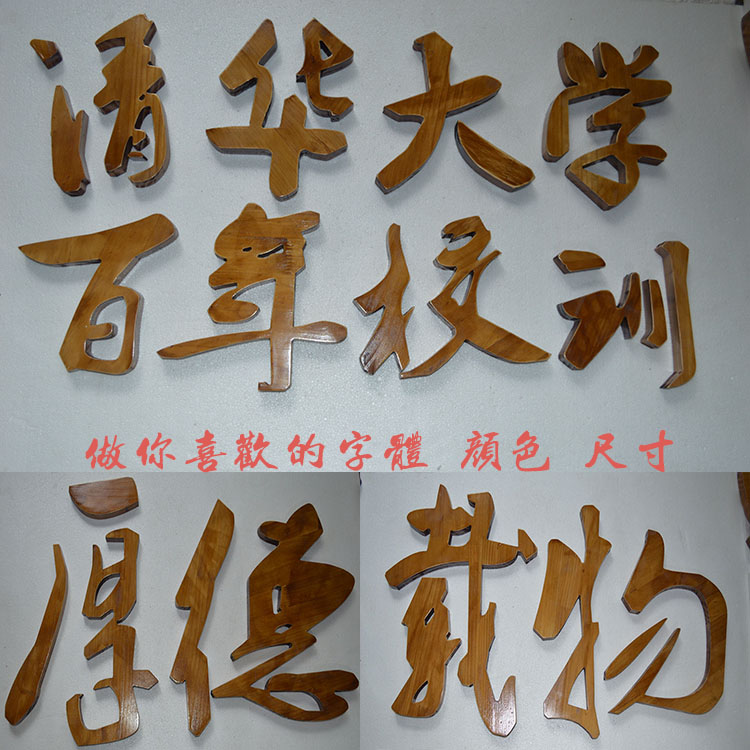 清华大学
百年校训
做你喜歡的字體 顔色 尺寸
厚德载物